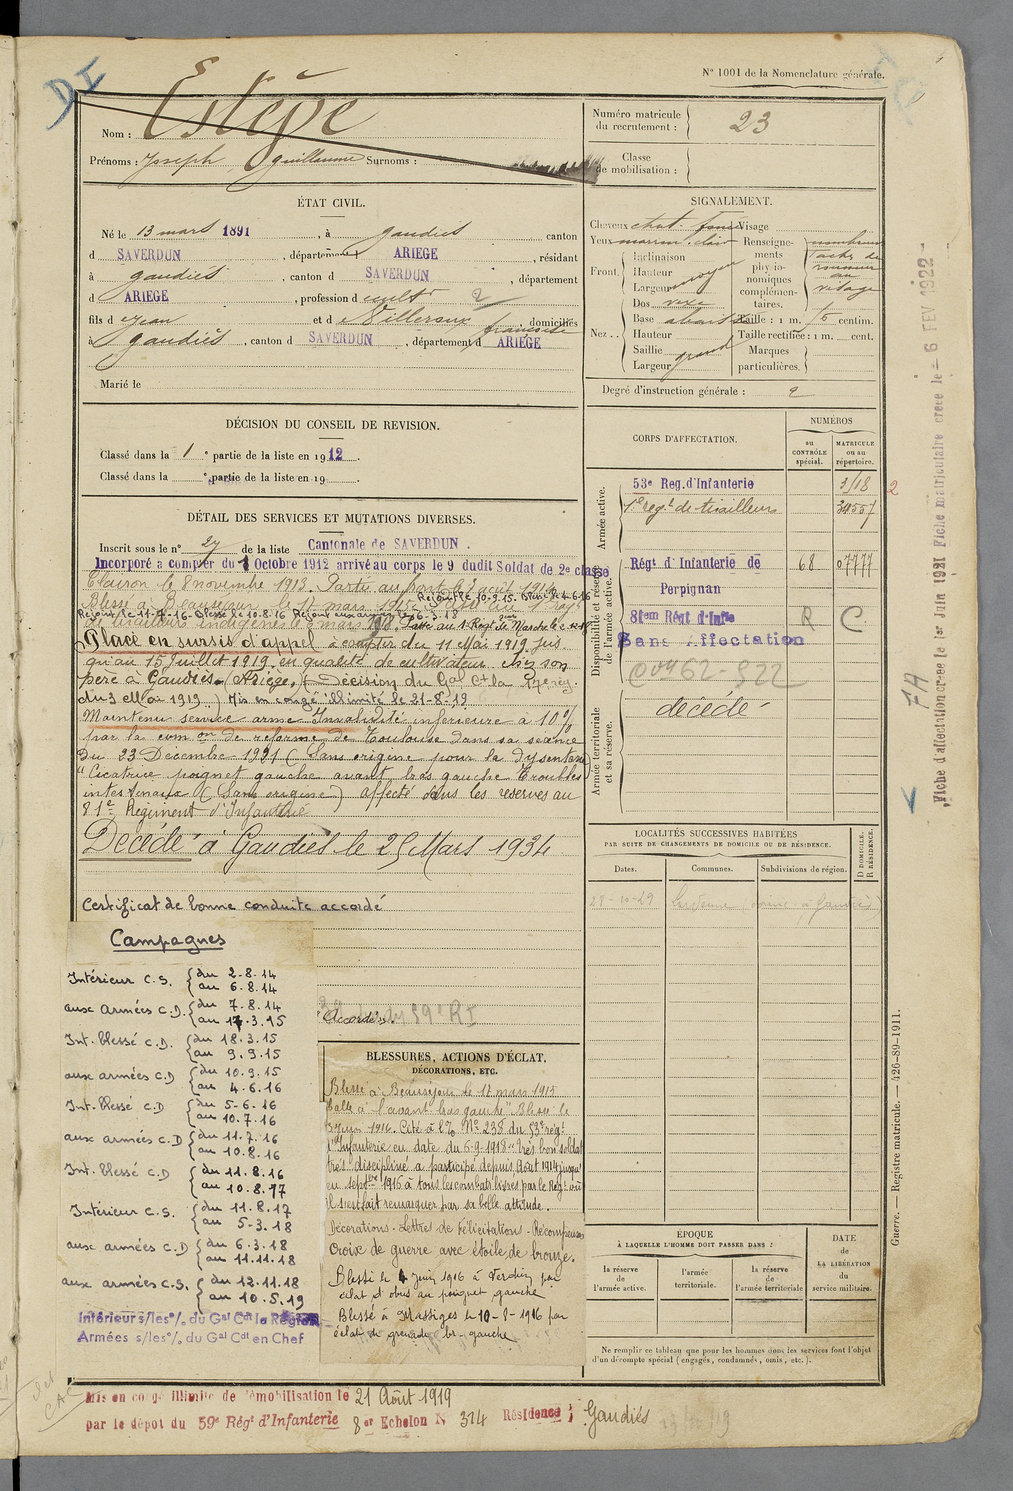 N° 1001 de la Nomenclature générale.
DI
Nom : Estève
Prénoms : Joseph Guillaume Surnoms :
Numéro matricule du recrutement : 23
Classe de mobilisation :
ÉTAT CIVIL.
Né le 13 mars 1891, à Gaudiès canton
d SAVERDUN, département ARIEGE, résidant
à Gaudiès, canton d SAVERDUN, département
d ARIEGE, profession d cultr
fils d e Jean et d e Villeroux françoise domiciliés
à Gaudiès, canton d SAVERDUN, département d ARIEGE
Marié le
SIGNALEMENT.
Cheveux chat. foncé
Yeux marron clair
Front. Inclinaison
Hauteur moyen
Largeur
Nez .. Dos vexe
Base abaissée
Hauteur
Saillie grand
Largeur
Visage
Renseignements physionomiques complémentaires. nombreuses taches de rousseur au visage
Taille : 1 m. 6 centim.
Taille rectifiée : 1 m. cent.
Marques particulières.
Degré d'instruction générale : 2
DÉCISION DU CONSEIL DE REVISION.
Classé dans la 1e partie de la liste en 1912.
Classé dans la e partie de la liste en 19 .
DÉTAIL DES SERVICES ET MUTATIONS DIVERSES.
Inscrit sous le n° 27 de la liste Cantonale de SAVERDUN.
Incorporé a compter du 8 Octobre 1912 arrivé au corps le 9 dudit Soldat de 2e classe
Clairon le 8 novembre 1913. Parti au front le 7 août 1914
Blessé à Beauséjour le 17 mars 1915
Rejoint le 10-9-15. Blessé le 4-6-16
Rejoint le 11-7-16 Blessé le 10.8.16 Rejoint aux armées le 6-3-18
de tirailleurs indigènes le 5 mars Passé au 1er Régt de Marche le
Placé en sursis d'appel à compter du 11 Mai 1919 jus
qu'au 15 Juillet 1919, en qualité de cultivateur chez son
père à Gaudiès (Ariège) (Décision du Gal Ct la 17e rég.
du 3 Mai 1919) Mis en congé illimité le 21-8-19
Maintenu service armé Invalidité inférieure à 10%
par la comon de réforme de Toulouse dans sa séance
du 23 Décembre 1921 (Sans origine pour la dysenterie)
"Cicatrice poignet gauche avant bras gauche troubles
intestinaux (Sans origine) affecté dans les réserves au
81e Régiment d'Infanterie
Décédé à Gaudiès le 25 Mars 1934
Certificat de bonne conduite accordé
"Accordé" au 59e RI
CORPS D'AFFECTATION.
NUMÉROS
au CONTRÔLE spécial.
MATRICULE ou au répertoire.
Armée active.
53e Reg. d'Infanterie 3118
1er regt de tirailleurs 34557
2
Disponibilité et réserve de l'armée active.
Régt d'Infanterie de Perpignan 68 07777
81em Régt d'Infie R C
Sans Affectation
Armée territoriale et sa réserve.
décédé
LOCALITÉS SUCCESSIVES HABITÉES
PAR SUITE DE CHANGEMENTS DE DOMICILE OU DE RÉSIDENCE.
Dates. Communes. Subdivisions de région. D DOMICILE. R RÉSIDENCE.
28-10-29
Campagnes
Intérieur C.S. du 2-8.14 au 6.8.14
aux armées C.D. du 7.8.14 au 17.3.15
Int. blessé C.D. du 18.3.15 au 9.9.15
aux armées C.D du 10.9.15 au 4.6.16
Int. blessé C.D du 5-6-16 au 10.7.16
aux armées C.D du 11.7.16 au 10.8.16
Int. blessé C.D du 11.8.16 au 10.8.17
Intérieur C.S. du 11.8.17 au 5-3.18
aux armées C.D du 6.3.18 au 11.11.18
aux armées C.S. du 12.11.18 au 10.5.19
Intérieur s/les °/. du Gal Cdt la Région
Armées s/les °/. du Gal Cdt en Chef
BLESSURES, ACTIONS D'ÉCLAT, DÉCORATIONS, ETC.
Blessé à Beauséjour le 17 mars 1915
balle à l'avant bras gauche Blessé le
3 Juin 1916. Cité à l'O. N° 238 du 53e régt
d'Infanterie en date du 6-9-1918 "très bon soldat
très discipliné a participé depuis Août 1914 jusqu'
en septbre 1916 à tous les combats livrés par le Régt où
il s'est fait remarquer par sa belle attitude.
Décorations - Lettres de félicitations - Récompenses
Croix de guerre avec étoile de bronze.
Blessé le 4 Juin 1916 à Verdun par
éclat d'obus au poignet gauche
Blessé à Massiges le 10-8-1916 par
éclat de grenade br. gauche
ÉPOQUE
À LAQUELLE L'HOMME DOIT PASSER DANS :
la réserve de l'armée active.
l'armée territoriale.
la réserve de l'armée territoriale
DATE de LA LIBÉRATION du service militaire.
Ne remplir ce tableau que pour les hommes dont les services font l'objet
d'un décompte spécial (engagés, condamnés, omis, etc.).
Mis en congé illimité de démobilisation le 21 Août 1919
par le dépôt du 59e Régt d'Infanterie 8er Echelon N 314 Résidence : Gaudiés
Guerre. — Registre matricule. — 426-89-1911.
Fiche d'affectation créée le 1er Juin 1921 Fiche matriculaire créée le - 6 FEV 1922
FA